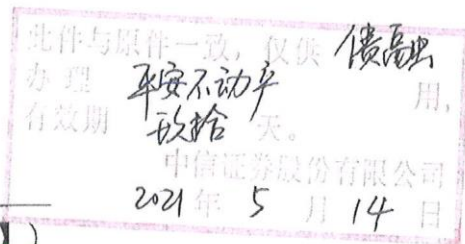 此件与原件一致，仅供 债融
办理 平安不动产 用，
有效期 玖拾 天。
中信证券股份有限公司
2021年 5 月 14 日